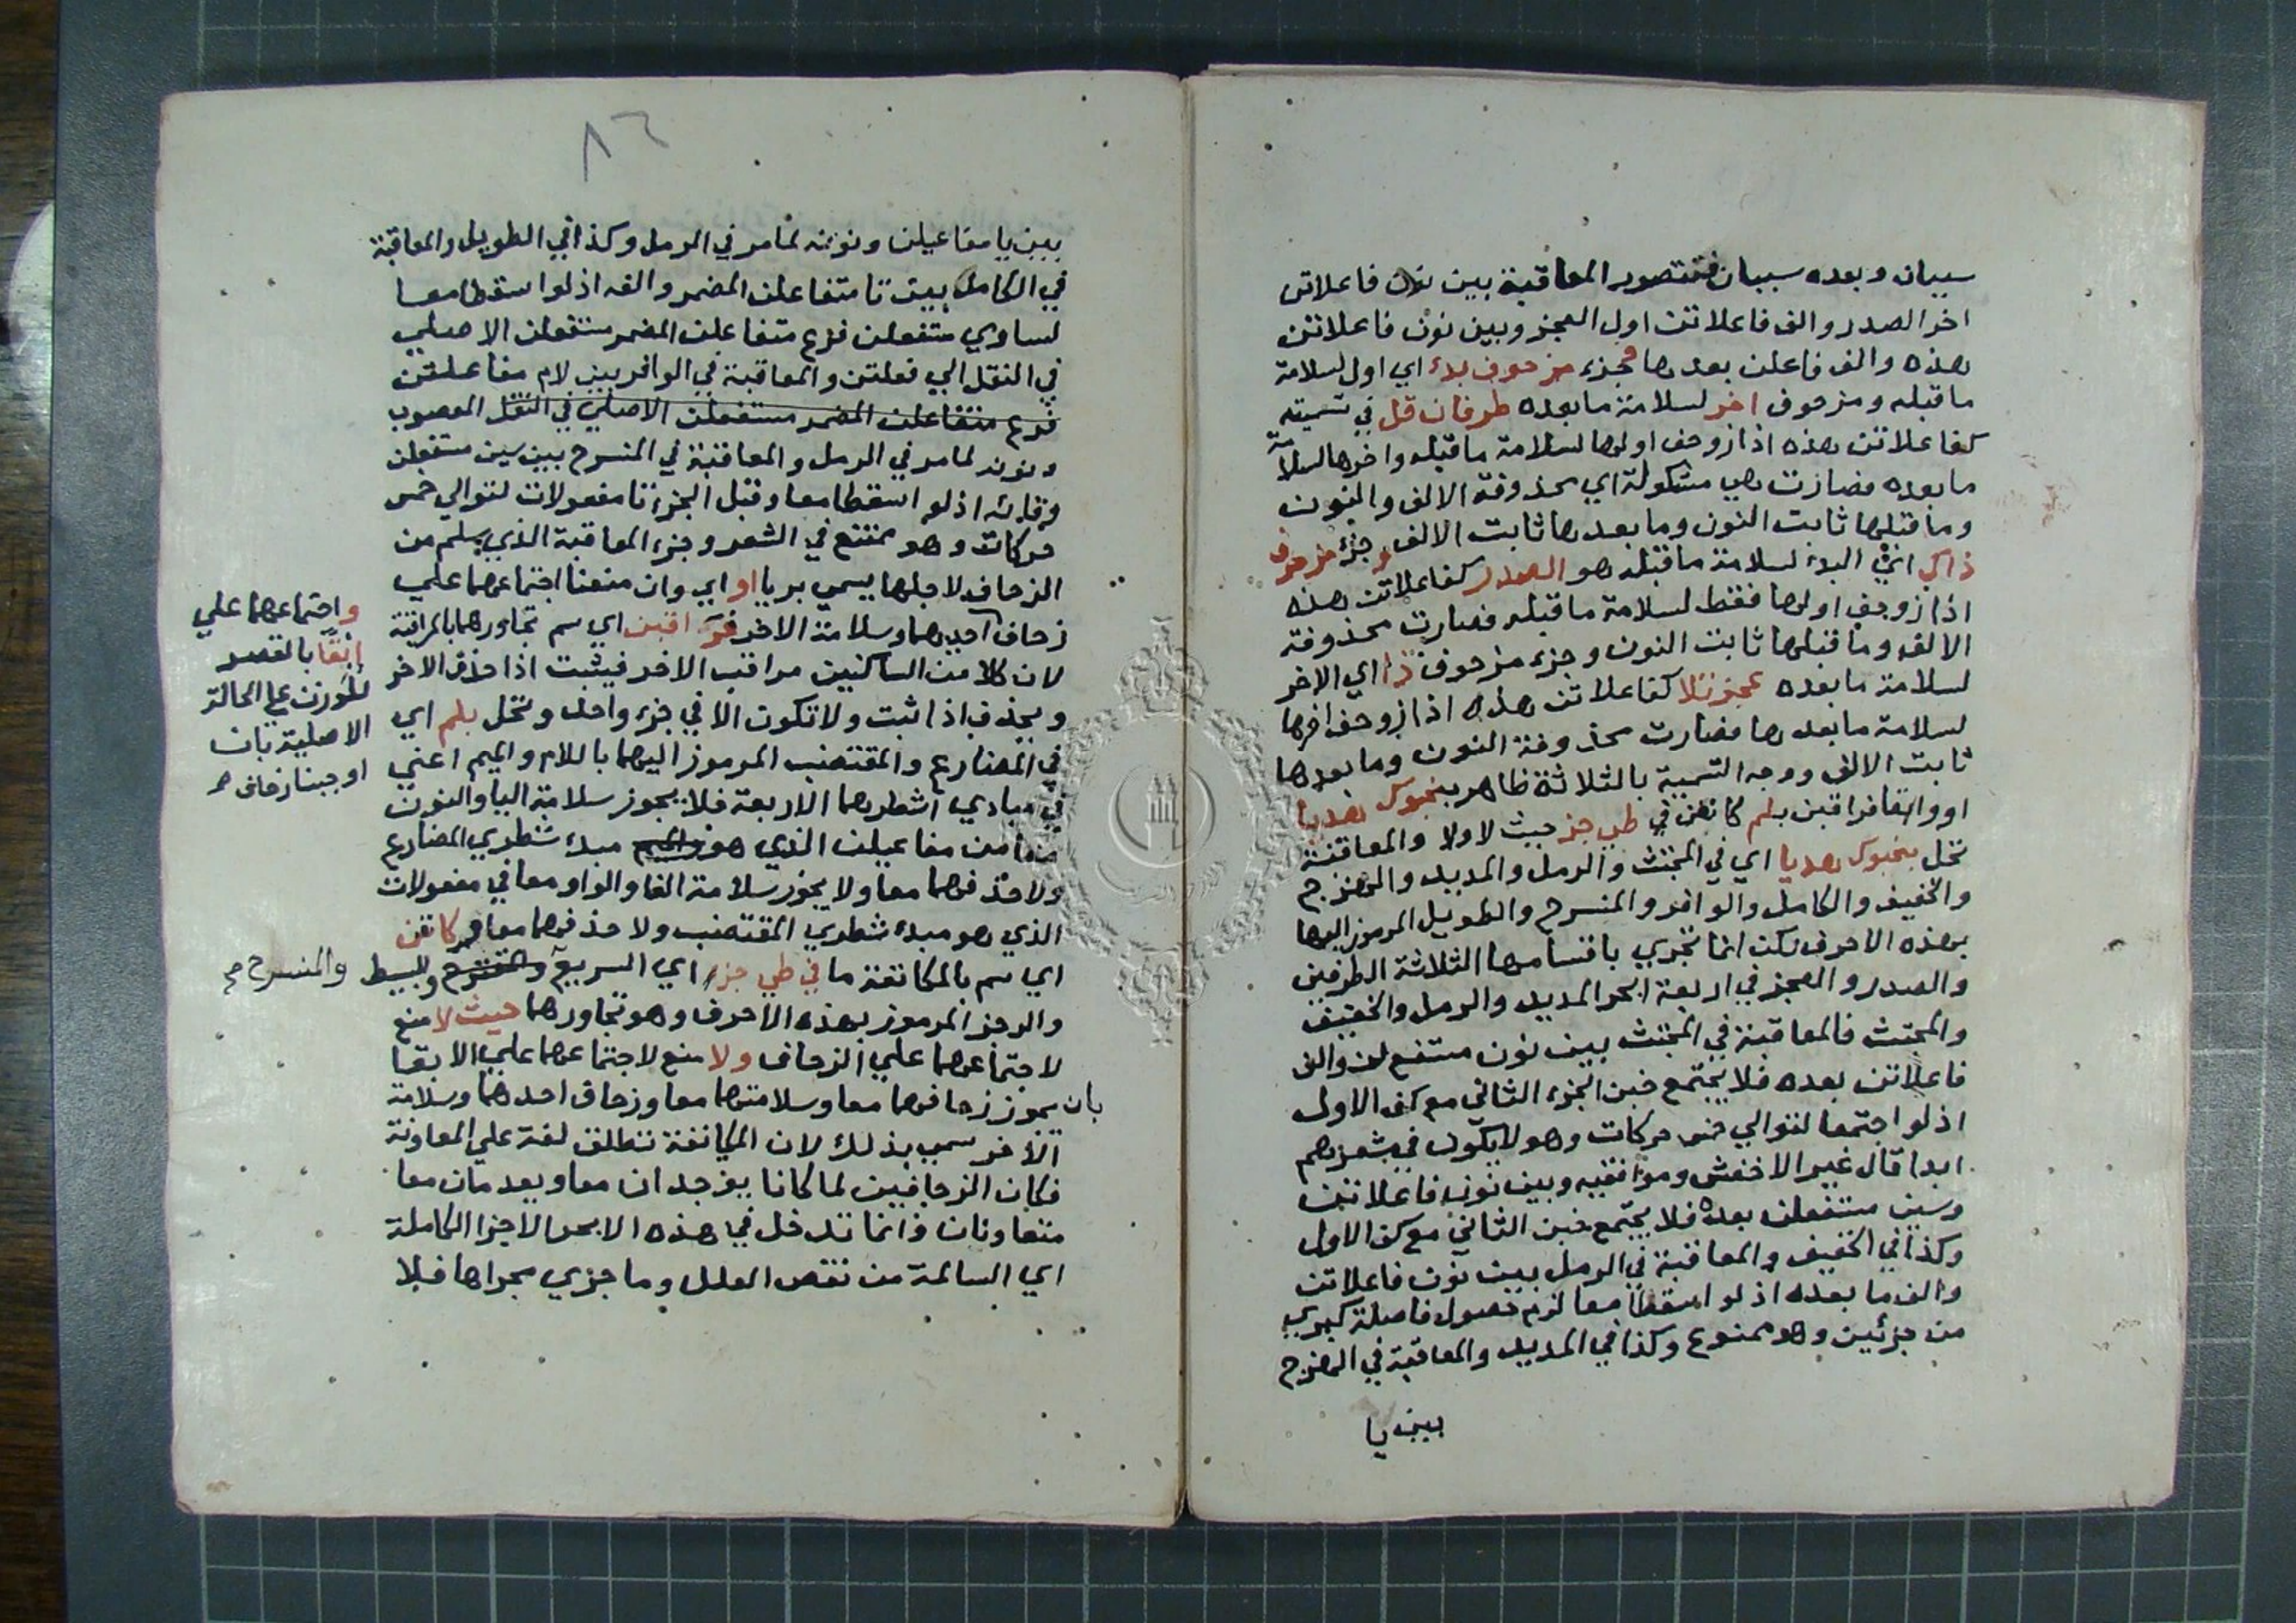 سببان وبعده سببان فتتصور المعاقبة بين نون فاعلاتن
اخر الصدر والف فاعلاتن اول العجز وبين نون فاعلاتن
هذه والف فاعلن بعدها فجزء مزحوف بدء اي اول لسلامة
ما قبله ومزحوف اخر لسلامة ما بعده طرفان قل في تسميته
كفاعلاتن هذه اذا زوحف اولها لسلامة ما قبله واخرها لسلامة
ما بعده فصارت هي مشكولة اي محذوفة الالف والنون
وما قبلها ثابت النون وما بعدها ثابت الالف وجزء مزحوف
ذاكي اي البدء لسلامة ما قبله هو الصدر كفاعلاتن هذه
اذا زوحف اولها فقط لسلامة ما قبله فصارت محذوفة
الالف وما قبلها ثابت النون وجزء مزحوف ذا اي الاخر
لسلامة ما بعده عجز تلا كفاعلاتن هذه اذا زوحف اخرها
لسلامة ما بعدها فصارت محذوفة النون وما بعدها
ثابت الالف ووجه التسمية بالثلاثة ظاهر بنحبوك هديا
او وانقا فراقبن بلم كانفن في طي جز حيث لا ولا والمعاقبة
تحل بنحبوك هديا اي في المجتث والرمل والمديد والهزج
والخفيف والكامل والوافر والمنسرح والطويل المرموز اليها
بهذه الاحرف لكن انما تجري باقسامها الثلاثة الطرفين
والصدر والعجز في اربعة ابحر المديد والرمل والخفيف
والمجتث فالمعاقبة في المجتث بين نون مستفع لن والف
فاعلاتن بعده فلا يجتمع خبن الجزء الثاني مع كف الاول
اذ لو اجتمعا لتوالي خمس حركات وهو لا يكون في شعرهم
ابدا قال غير الاخفش وموافقيه وبين نون فاعلاتن
وسين مستفعلن بعده فلا يجتمع خبن الثاني مع كف الاول
وكذا في الخفيف والمعاقبة في الرمل بين نون فاعلاتن
والف ما بعده اذ لو اسقطا معا لزم حصول فاصلة كبري
من جزئين وهو ممنوع وكذا في المديد والمعاقبة في الهزج
بين يا
٨٦
بين يا مفاعيلن ونونه لما مر في الرمل وكذا في الطويل والمعاقبة
في الكامل بين تا متفاعلن المضمر والفه اذ لو اسقطا معا
لساوي متفعلن فرع متفاعلن المضمر مستفعلن الاصلي
في النقل الي فعلتن والمعاقبة في الوافر بين لام مفاعلتن
فرع متفاعلن المضمر مستفعلن الاصلي في النقل المعصوب
ونونه لما مر في الرمل والمعاقبة في المنسرح بين سين مستفعلن
وفائه اذ لو اسقطا معا وقبل الجزء تا مفعولات لتوالي خمس
حركات وهو ممتنع في الشعر وجزء المعاقبة الذي يسلم من
الزحاف لاجلها يسمي بريا او اي وان منعنا اجتماعهما علي
زحاف احدهما وسلامة الاخر فراقبن اي سم تجاورهما بالمراقبة
لان كلا من الساكنين مراقب الاخر فيثبت اذا حذف الاخر
ويحذف اذا ثبت ولا تكون الا في جزء واحد وتحل بلم اي
في المضارع والمقتضب المرموز اليهما باللام والميم اعني
في مبادي اشطرهما الاربعة فلا يجوز سلامة اليا والنون
معا من مفاعيلن الذي هو والميم مبدء شطري المضارع
ولا حذفهما معا ولا يجوز سلامة الفا والواو معا في مفعولات
الذي هو مبدء شطري المقتضب ولا حذفهما معا وكانفن
اي سم بالمكانفة ما في طي جز اي السريع والمنسرح والبسيط والمنسرح صح
والرجز المرموز بهذه الاحرف وهو تجاورهما حيث لا منع
لاجتماعهما علي الزحاف ولا منع لاجتماعهما علي الابقا
بان يجوز زحافهما معا وسلامتهما معا وزحاف احدهما وسلامة
الاخر سمي بذلك لان المكانفة تطلق لغة علي المعاونة
فكان الزحافين لما كانا يوجدان معا ويعدمان معا
متعاونان وانما تدخل في هذه الابحر الاجزا الكاملة
اي السالمة من نقص العلل وما جزي مجراها فلا
واجتماعهما علي
ابقا بالقصر
للوزن علي الحالة
الاصلية بان
اوجبنا زحاف